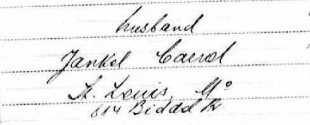 husband
Jankel Carrol
St. Louis, Mo
614 Biddel Str